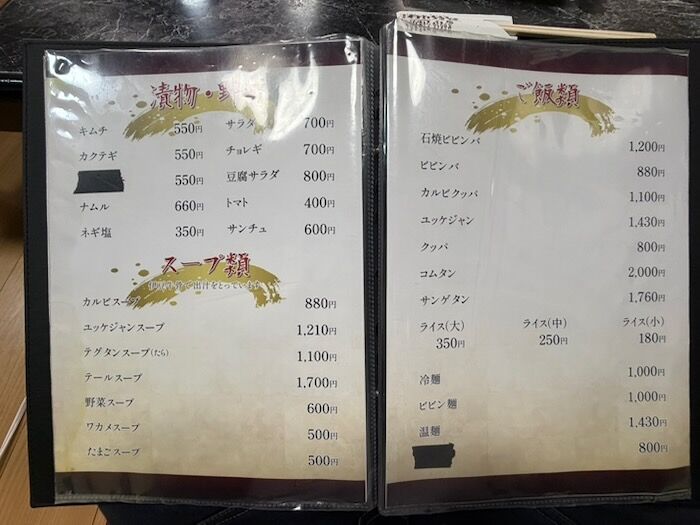 漬物・野
キムチ 550円
カクテギ 550円
550円
ナムル 660円
ネギ塩 350円
サラダ 700円
チョレギ 700円
豆腐サラダ 800円
トマト 400円
サンチュ 600円
スープ類
出汁をとっています
カルビスープ 880円
ユッケジャンスープ 1,210円
テグタンスープ(たら) 1,100円
テールスープ 1,700円
野菜スープ 600円
ワカメスープ 500円
たまごスープ 500円
ご飯類
石焼ビビンバ 1,200円
ビビンバ 880円
カルビクッパ 1,100円
ユッケジャン 1,430円
クッパ 800円
コムタン 2,000円
サンゲタン 1,760円
ライス(大) ライス(中) ライス(小)
350円 250円 180円
冷麺 1,000円
ビビン麺 1,000円
温麺 1,430円
800円